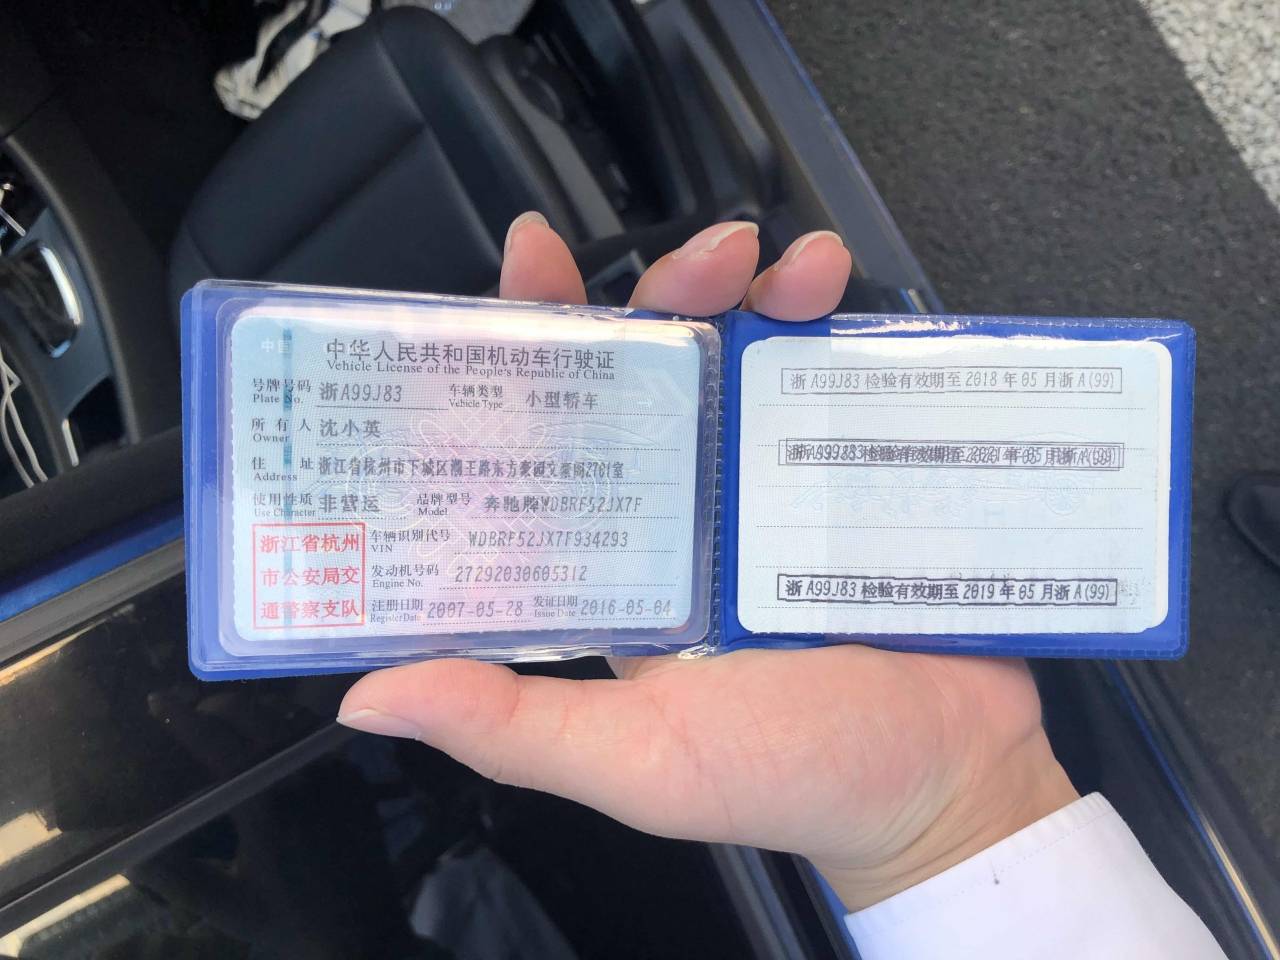 中国
中华人民共和国机动车行驶证
Vehicle License of the People's Republic of China
号牌号码 Plate No. 浙A99J83 车辆类型 Vehicle Type 小型轿车
所有人 Owner 沈小英
住址 Address 浙江省杭州市下城区潮王路东方豪园文豪阁2701室
使用性质 Use Character 非营运 品牌型号 Model 奔驰牌WDBRF52JX7F
浙江省杭州
市公安局交
通警察支队
车辆识别代号 VIN WDBRF52JX7F934293
发动机号码 Engine No. 27292030605312
注册日期 Register Date 2007-05-28 发证日期 Issue Date 2016-05-04
浙A99J83检验有效期至2018年05月浙A(99)
检验有效期至 年05月浙A(99)
浙A99J83检验有效期至2019年05月浙A(99)